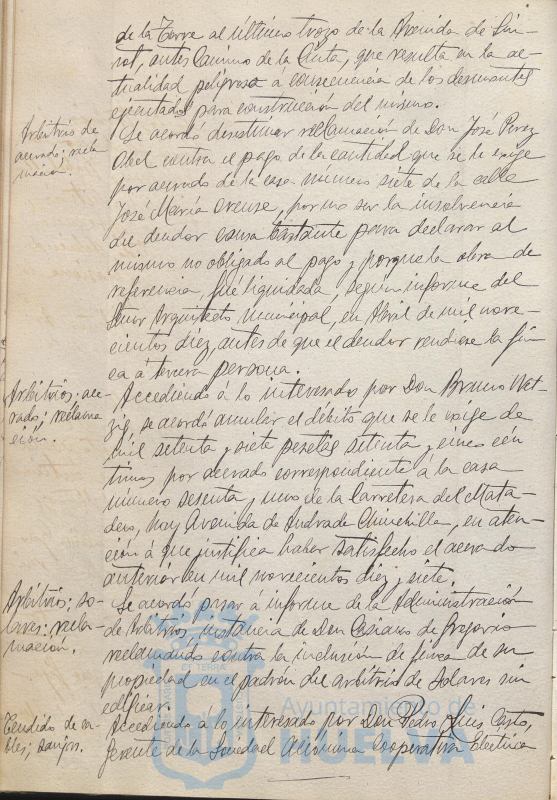 de la Torre al último trozo de la Avenida de Sun-
rot, antes Camino de la Cinta, que resulta en la ac-
tualidad peligrosa á consecuencia de los desmontes
ejecutados para construcción del mismo.
Arbitrio de
acerado; recla-
mación.
Se acordó desestimar reclamación de Don José Perez
Abel contra el pago de la cantidad que se le exige
por acerado de la casa número siete de la calle
José María Orense, por no ser la insolvencia
del deudor causa bastante para declarar al
mismo no obligado al pago y porque la obra de
referencia, fué liquidada, según informe del
Señor Arquitecto Municipal, en Abril de mil nove-
cientos diez, antes de que el deudor vendiese la fin-
ca á tercera persona.
Arbitrios; ace-
rado; reclama-
ción.
Accediendo á lo interesado por Don Bruno Wet-
zig, se acordó anular el débito que se le exige de
mil setenta y siete pesetas setenta y cinco cén-
timos por acerado correspondiente á la casa
número sesenta y uno de la Carretera del Mata-
dero, hoy Avenida de Andrade Chinchilla, en aten-
ción á que justifica haber satisfecho el acerado
anterior en mil novecientos diez y siete.
Arbitrios; so-
lares: recla-
mación.
Se acordó pasar á informe de la Administración
de Arbitrios, instancia de Don Casiano de Gregorio
reclamando contra la inclusión de finca de su
propiedad en el padrón del arbitrio de Solares sin
edificar.
Tendido de ca-
bles; zanjas.
Accediendo á lo interesado por Don Pedro Luis Casto,
Gerente de la Sociedad Anónima Cooperativa Eléctrica
Ayuntamiento de
HUELVA